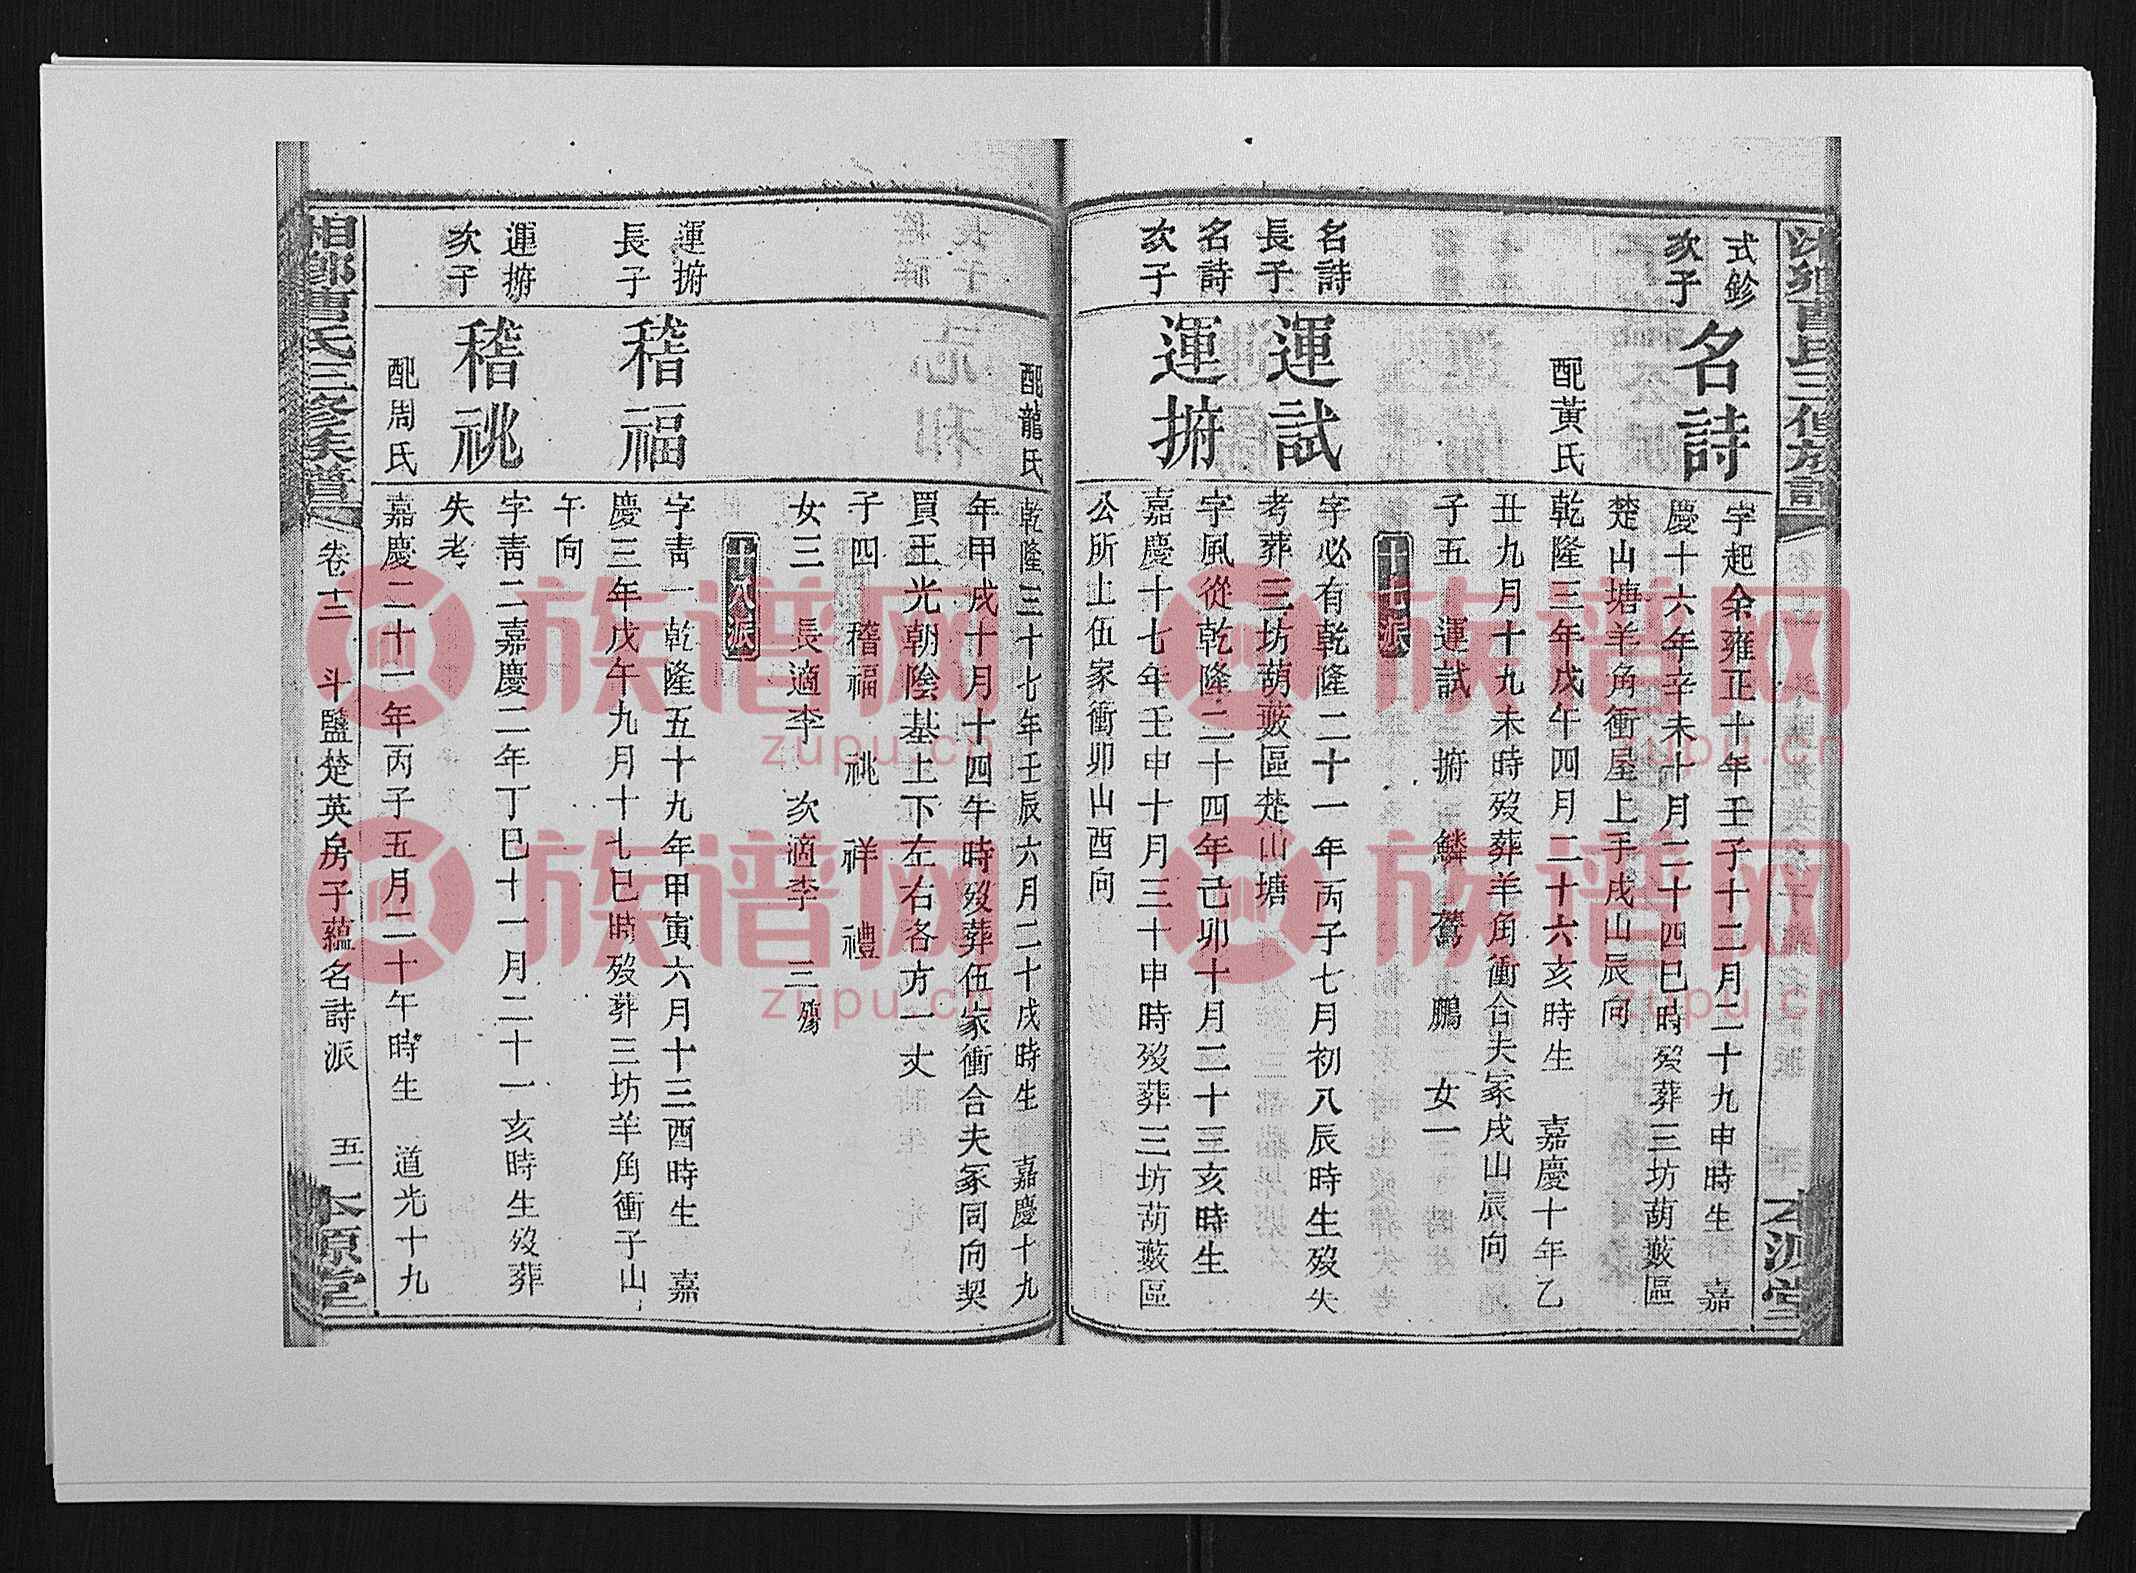 式鉁
次子
名詩
字起余雍正十年壬子十二月二十九申時生 嘉
慶十六年辛未十月二十四巳時歿葬三坊葫藪區
楚山塘羊角衝屋上手戌山辰向
配黃氏
乾隆三年戊午四月二十六亥時生 嘉慶十年乙
丑九月十九未時歿葬羊角衝合夫冢戌山辰向
子五 運試 搢 鱗 鶱 鵬 女一
十七派
名詩
長子
運試
字必有乾隆二十一年丙子七月初八辰時生歿失
考葬三坊葫藪區楚山塘
名詩
次子
運搢
字風從乾隆二十四年己卯十月二十三亥時生
嘉慶十七年壬申十月三十申時歿葬三坊葫藪區
公所上伍家衝卯山酉向
配龍氏
乾隆三十七年壬辰六月二十戌時生 嘉慶十九
年甲戌十月十四午時歿葬伍家衝合夫冢同向契
買王光朝陰基上下左右各方一丈
子四 稽福 祧 祥 禮
女三 長適李 次適李 三殤
十八派
運搢
長子
稽福
字青一乾隆五十九年甲寅六月十三酉時生 嘉
慶三年戊午九月十七巳時歿葬三坊羊角衝子山
午向
運搢
次子
稽祧
字青二嘉慶二年丁巳十一月二十一亥時生歿葬
失考
配周氏
嘉慶二十一年丙子五月二十年時生 道光十九
曹氏三修族譜
卷十二 斗鹽楚英房子蘊名詩派
五一
本源堂
族谱网
zupu.cn
族谱网
zupu.cn
族谱网
zupu.cn
族谱网
zupu.cn